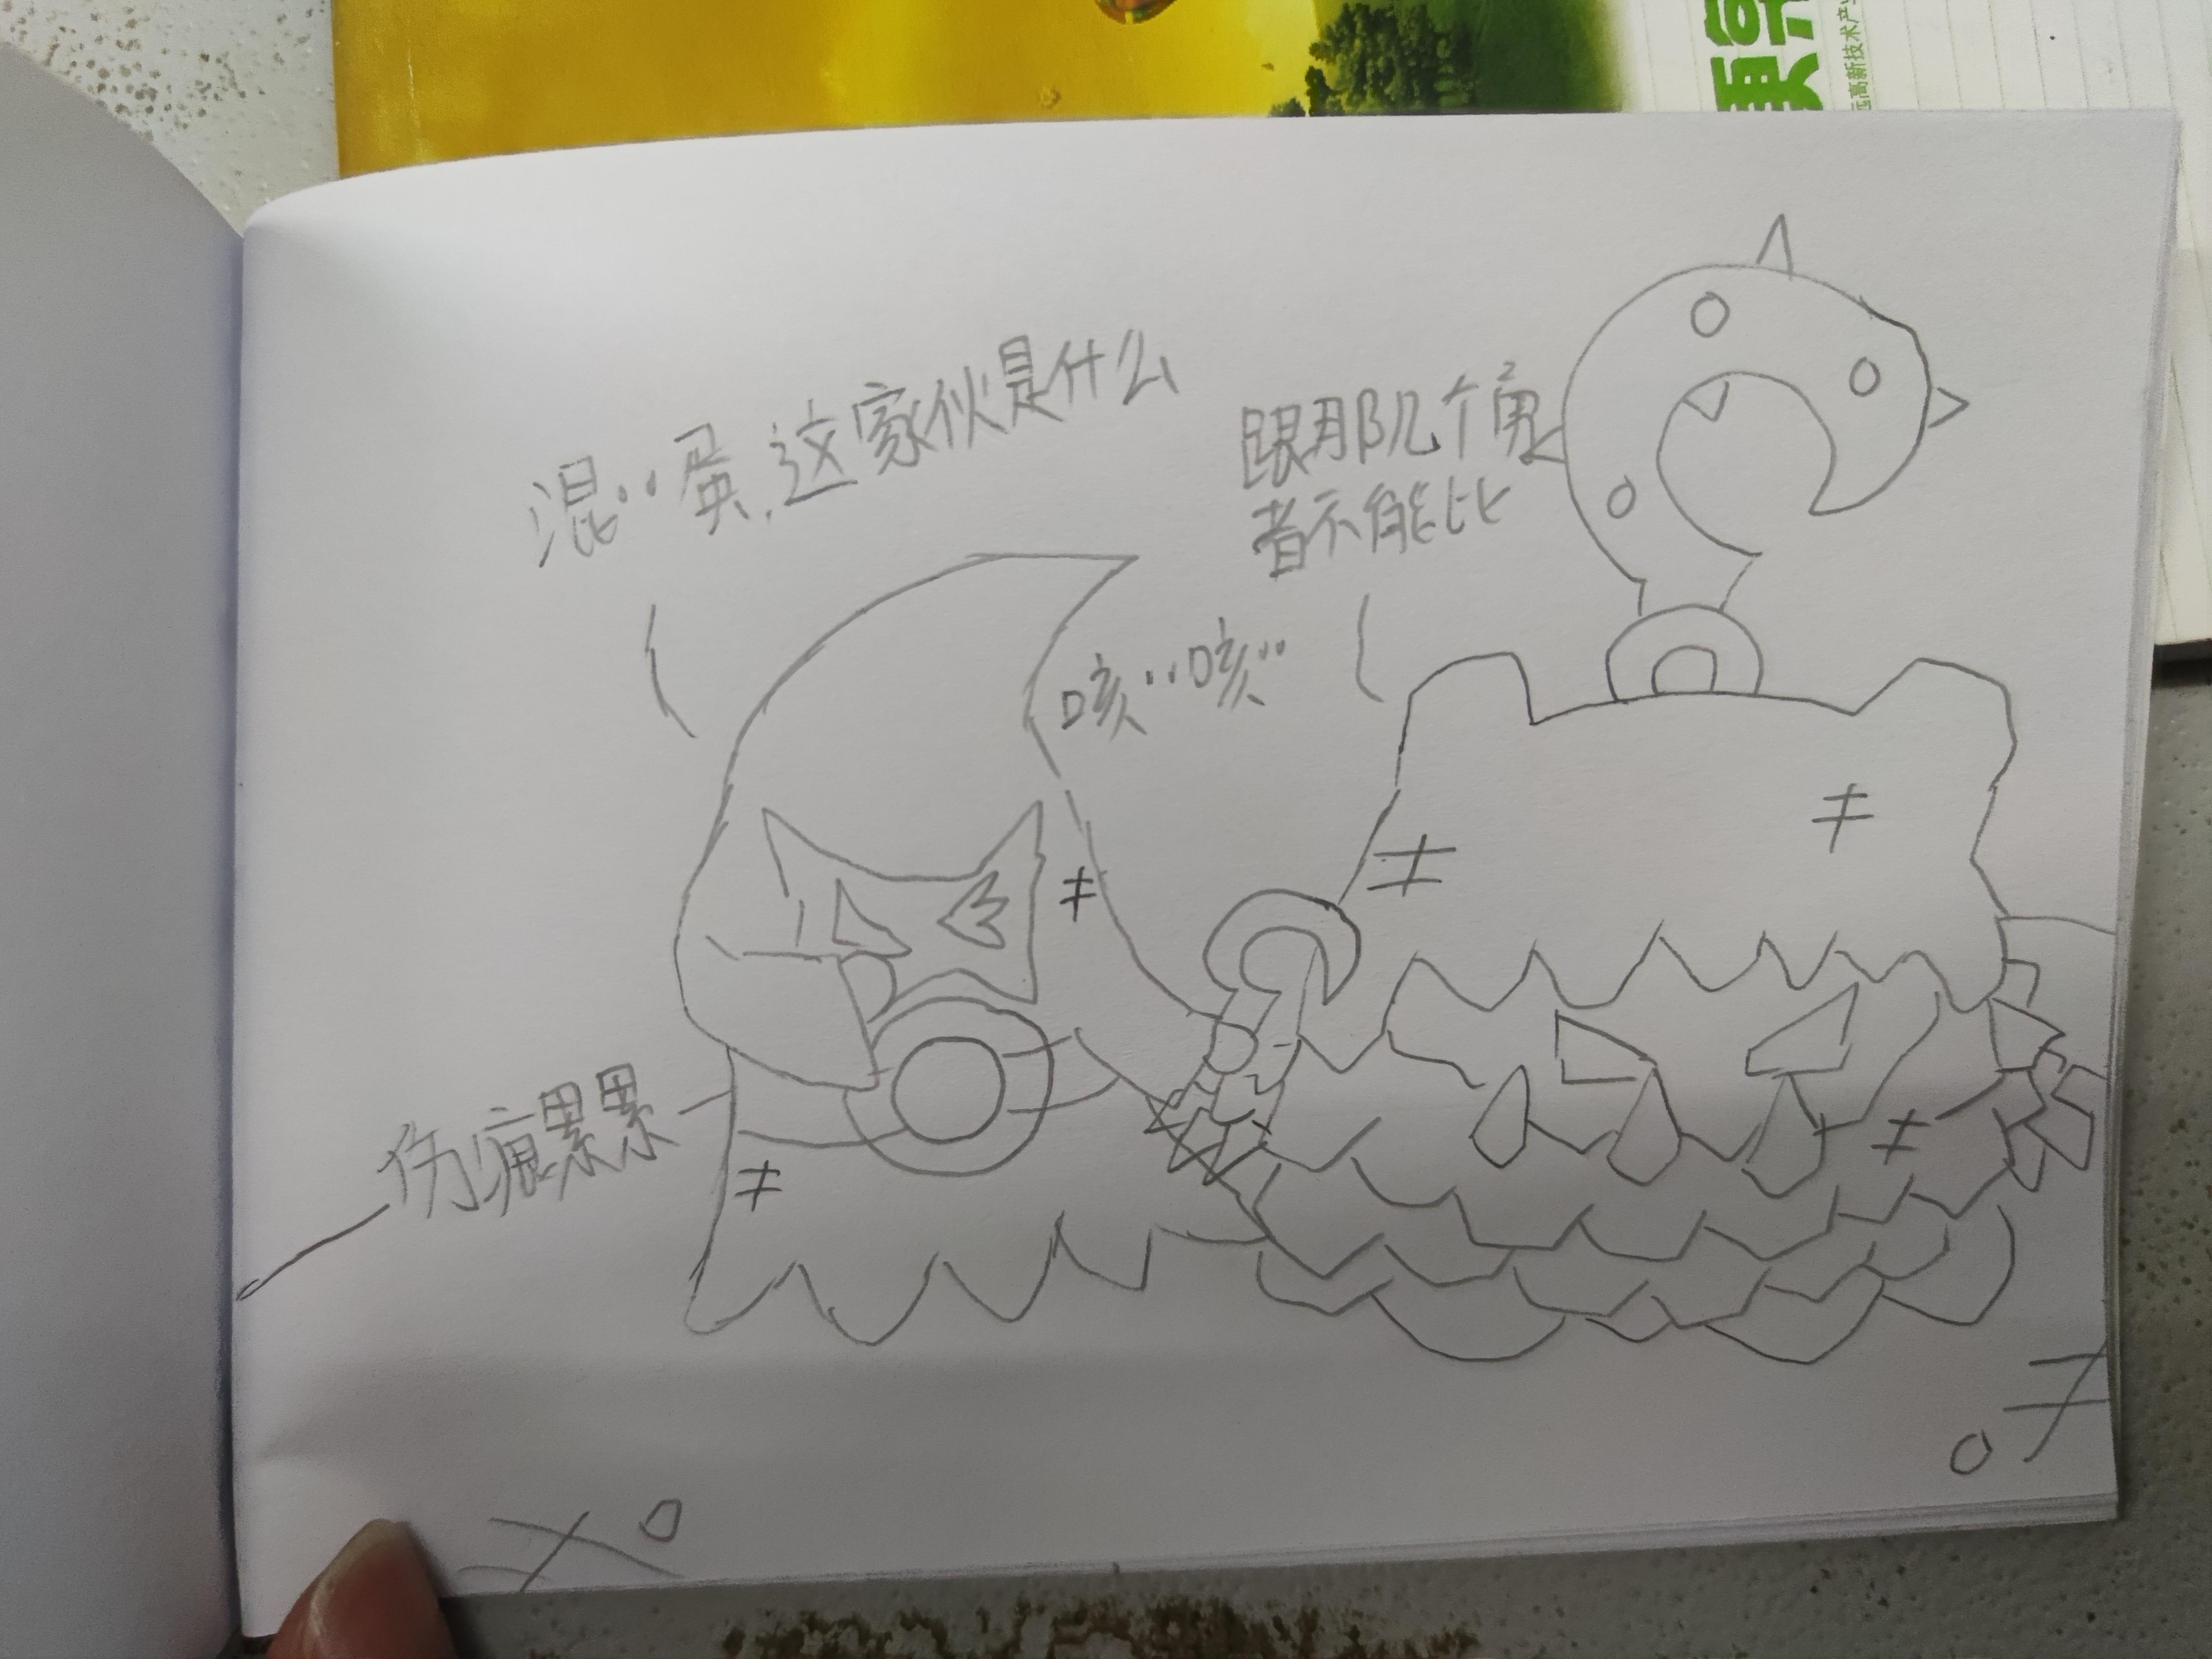 混..蛋,这家伙是什么
跟那几个勇
者不能比
咳..咳..
伤痕累累
远高新技术产